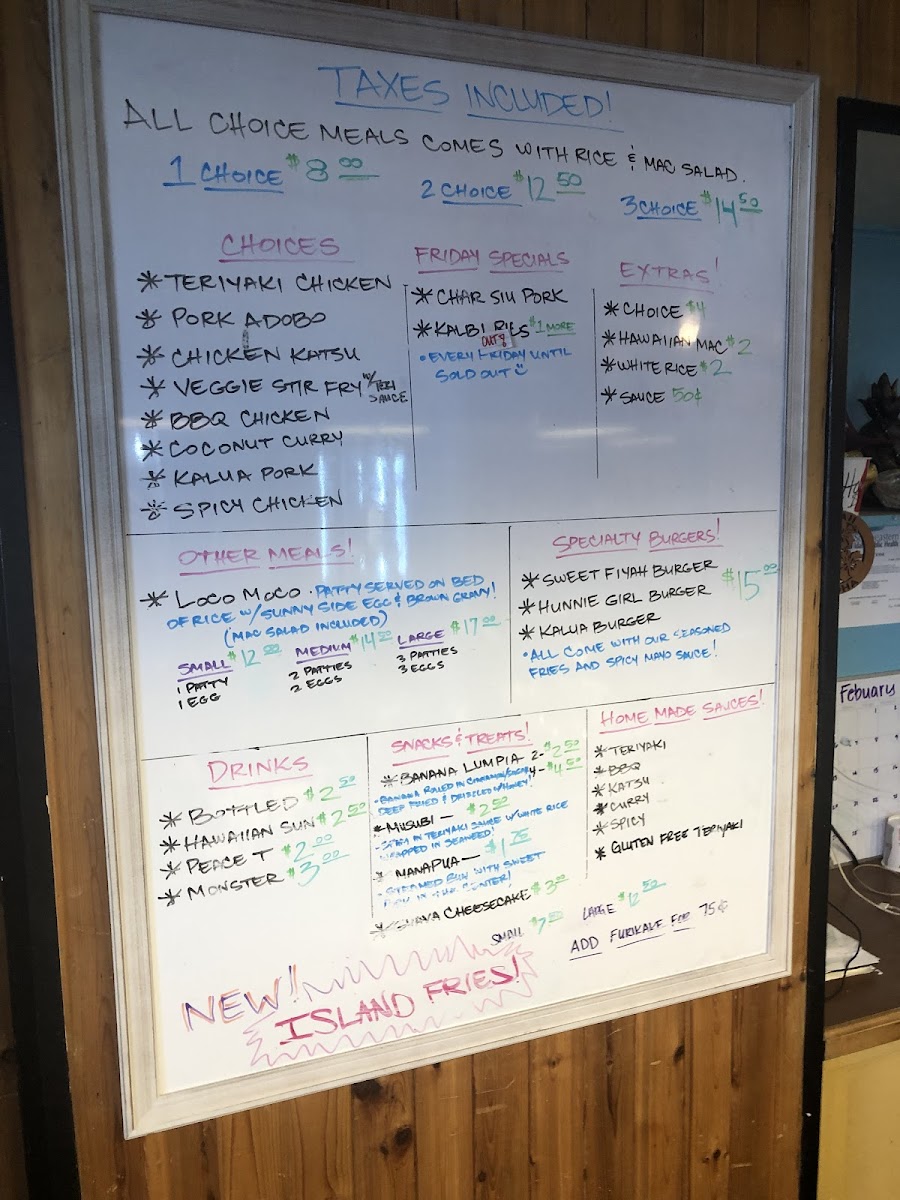 TAXES INCLUDED!
ALL CHOICE MEALS COMES WITH RICE & MAC SALAD.
1 CHOICE $8 00
2 CHOICE $12 50
3 CHOICE $14 50
CHOICES
* TERIYAKI CHICKEN
* PORK ADOBO
* CHICKEN KATSU
* VEGGIE STIR FRY W/ TERI SAUCE
* BBQ CHICKEN
* COCONUT CURRY
* KALUA PORK
* SPICY CHICKEN
FRIDAY SPECIALS
* CHAR SIU PORK
* KALBI RIBS $1 MORE
OUT
• EVERY FRIDAY UNTIL
SOLD OUT
EXTRAS!
* CHOICE $4
* HAWAIIAN MAC $2
* WHITE RICE $2
* SAUCE 50¢
OTHER MEALS!
* LOCO MOCO • PATTY SERVED ON BED
OF RICE W/ SUNNY SIDE EGG & BROWN GRAVY!
(MAC SALAD INCLUDED)
SMALL $12 00
1 PATTY
1 EGG
MEDIUM $14 50
2 PATTIES
2 EGGS
LARGE $17 00
3 PATTIES
3 EGGS
SPECIALTY BURGERS!
* SWEET FIYAH BURGER
* HUNNIE GIRL BURGER $15 00
* KALUA BURGER
• ALL COME WITH OUR SEASONED
FRIES AND SPICY MAYO SAUCE!
DRINKS
* BOTTLED $2 50
* HAWAIIAN SUN $2 50
* PEACE T $2 00
* MONSTER $3 00
SNACKS & TREATS!
* BANANA LUMPIA 2- $2 50
4- $4 50
• BANANA ROLLED IN CINNAMON/SUGAR
DEEP FRIED & DRIZZLED W/ HONEY!
* MUSUBI — $2 50
• SPAM IN TERIYAKI SAUCE W/ WHITE RICE
WRAPPED IN SEAWEED!
* MANAPUA — $1 75
• STEAMED BUN WITH SWEET
IN THE CENTER!
* GUAVA CHEESECAKE $3 00
HOME MADE SAUCES!
* TERIYAKI
* BBQ
* KATSU
* CURRY
* SPICY
* GLUTEN FREE TERIYAKI
SMALL $7 50
LARGE $12 50
ADD FURIKAKE FOR 75¢
NEW!
ISLAND FRIES!
Febuary